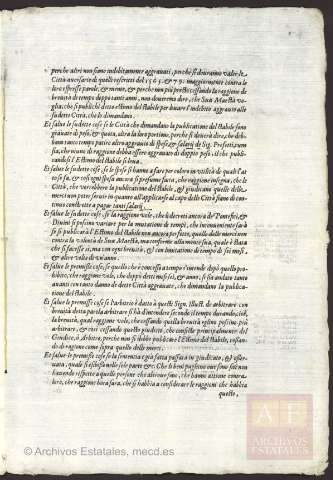 perche altri non siano indebitamente aggrauati, perche si deueriano valer le
Città auersarie di quelli estimati del 1565. & 79. maggiormente contra le
loro espresse parole, & mente, & che non più presto cessando la raggione di
breuità di tempo doppo tanti anni, non doueremo dire, che Sua Maestà vo-
glia, che si publichi detto estimo del stabile per leuare l'indebito aggrauio alle
sudette Città, che lo dimandano.
Et salue le sudette cose se le Città che dimandano la publicatione del stabile sono
grauate di più, & quota, oltra la loro portione, perche si deuerà dire, che deb-
bano tanto tempo patire altro aggrauio di spese & salarij de Sig. Prefetti,
che, niuno di raggione debba essere aggrauato di doppio peso, & che publi-
candosi l'Estimo del stabile si leua.
Et salue le sudette cose, se le spese si hanno a fare per cadere in vtilità de
& così ogni spesa mai si presume fatta, che raggione insegna, che le
Città, che vorrebbero la publicatione del stabile, & giudicano quelle delle
merci non poter seruire in quanto all'applicarse al capo delle Città siano con-
tinuo constrette a pagar tanti salarij.
Et salue le sudette cose, se la raggione vole, che li decreti ancora de Pontefici, &
Diuini si possino variare per la mutatione de tempi, che inconueniente sarà
se si publica l'Estimo del stabile non ancora perfette, quelle delle merci con-
tra la volontà di Sua Maestà, ma conforme alla mente sua, quale è stata
che si facesse sì, ma con ogni breuità, & con limitatione di tempo di sei mesi,
& altre volte di vn'anno.
Et salue le premisse cose, se quello che è concesso a tempo s'intende depò quello pro-
hibito, che raggione vole, che doppò detti mesi sei, & anni, si sia andato tanto
auanti con tanto danno de dette Città, che dimandano la publica-
tione del stabile.
Et salue le premisse cose se l'arbitrio è dato à queste Sign. Illust. de arbitrare con
breuità detta parola arbitrare si hà d'intendere secondo il tempo durando,
la breuità, qual raggione vole, che cessando quella breuità esplosi possino più
arbitrare, & così cessando questo giudicio, che compete principalmente del
Giudice, ò Arbitro, perche non si debba publicare l'Estimo del stabile, cessan-
do di ragione come sopra quello delle merci.
Et salue le premisse cose se la sentenza è già fatta passata in giudicato, & esser-
cata, quale si estende nelle sole parte &c. Che li beni pagano oue sono siti non
hauendo rispetto a quelle persone che altroue sono, che hanno attione contra
loro, che raggione hora sarà, che si habbia a considerare le raggioni che habbia
questo,
© Archivos Estatales, mecd.es
AE
ARCHIVOS
ESTATALES